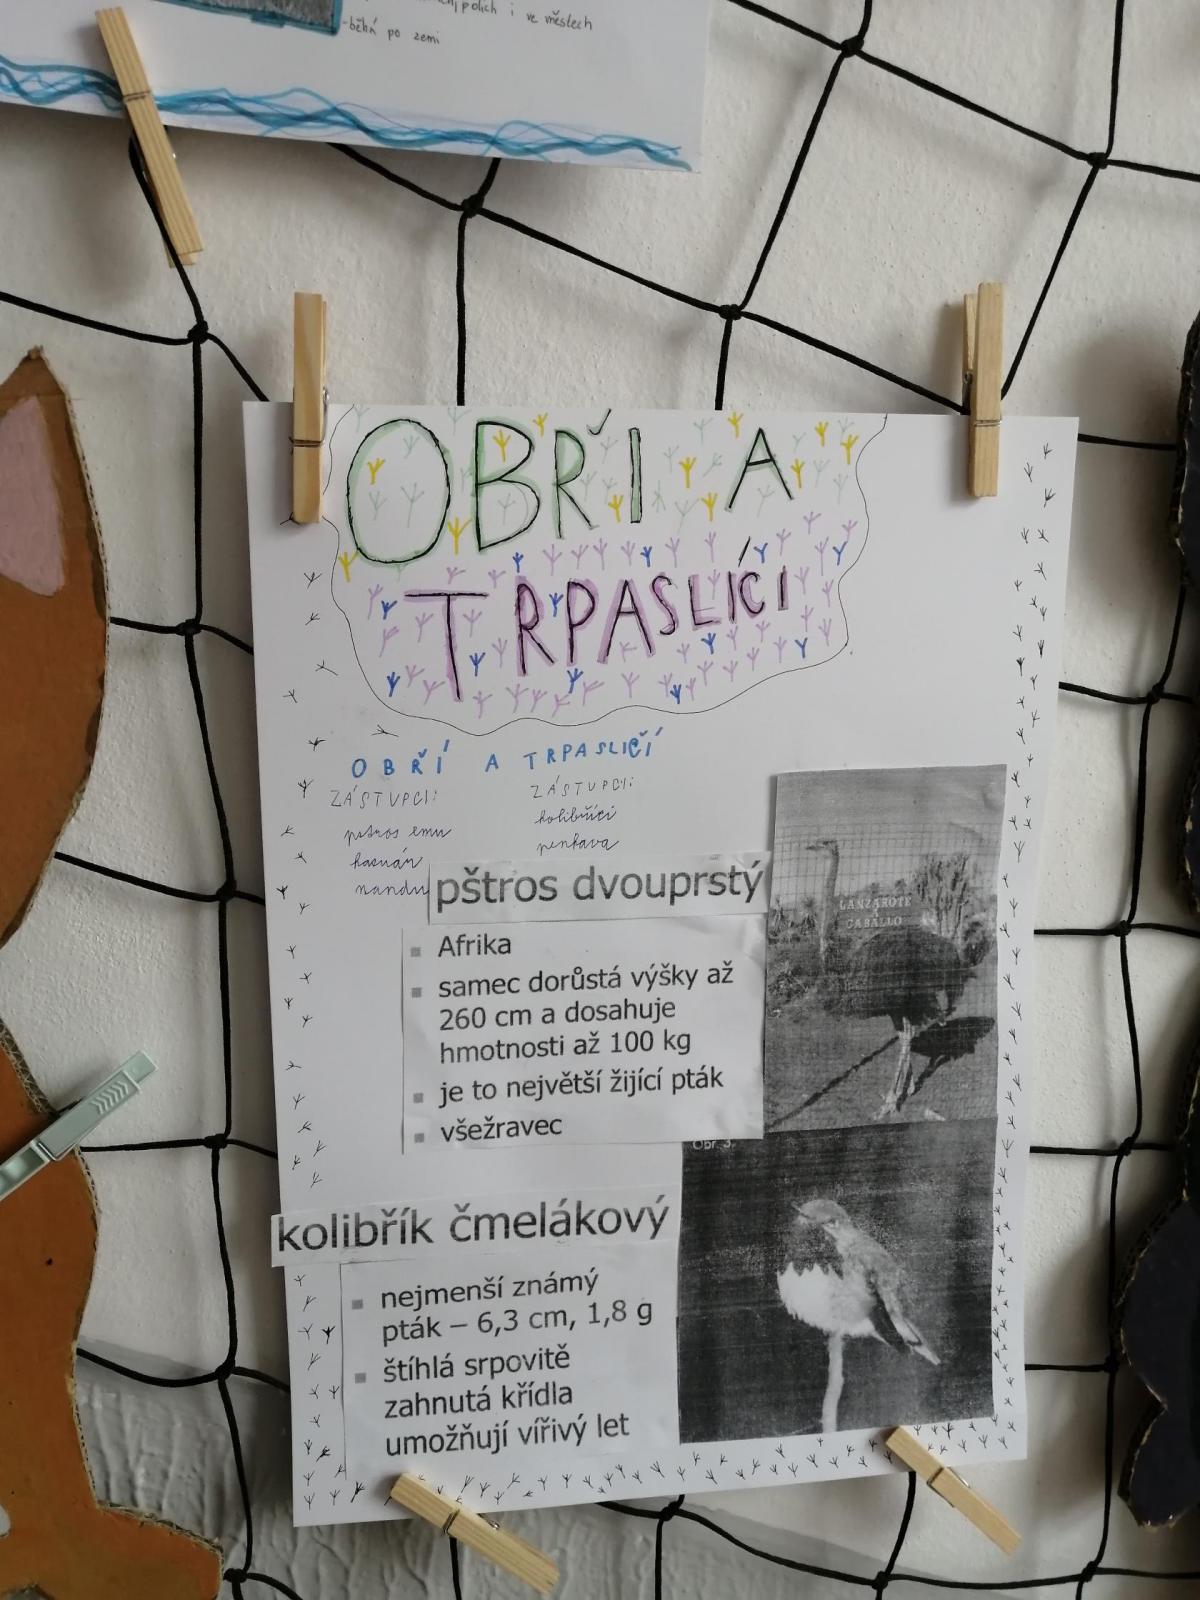 polích i ve městech
-běhá po zemi
OBŘI A
TRPASLÍCI
OBŘÍ A TRPASLIČÍ
ZÁSTUPCI:
ZÁSTUPCI:
pštros emu
kolibříci
kasuár
penkava
nandu
pštros dvouprstý
LANZAROTE
A
CABALLO
Afrika
samec dorůstá výšky až
260 cm a dosahuje
hmotnosti až 100 kg
je to největší žijící pták
všežravec
Obr. 3.
kolibřík čmelákový
nejmenší známý
pták – 6,3 cm, 1,8 g
štíhlá srpovitě
zahnutá křídla
umožňují vířivý let